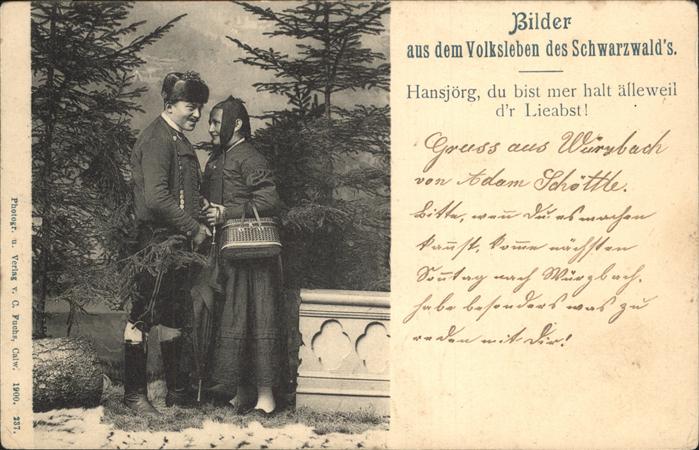 Bilder
aus dem Volksleben des Schwarzwald's.
Hansjörg, du bist mer halt älleweil
d'r Lieabst!
Gruss aus Würzbach
von Adam Schöttle.
Bitte, wen̄ du es machen
kan̄st, kom̄e nächsten
Son̄tag nach Würzbach,
habe besonders was zu
reden mit dir!
Photogr. u. Verlag v. C. Fuchs, Calw. 1900. 237.